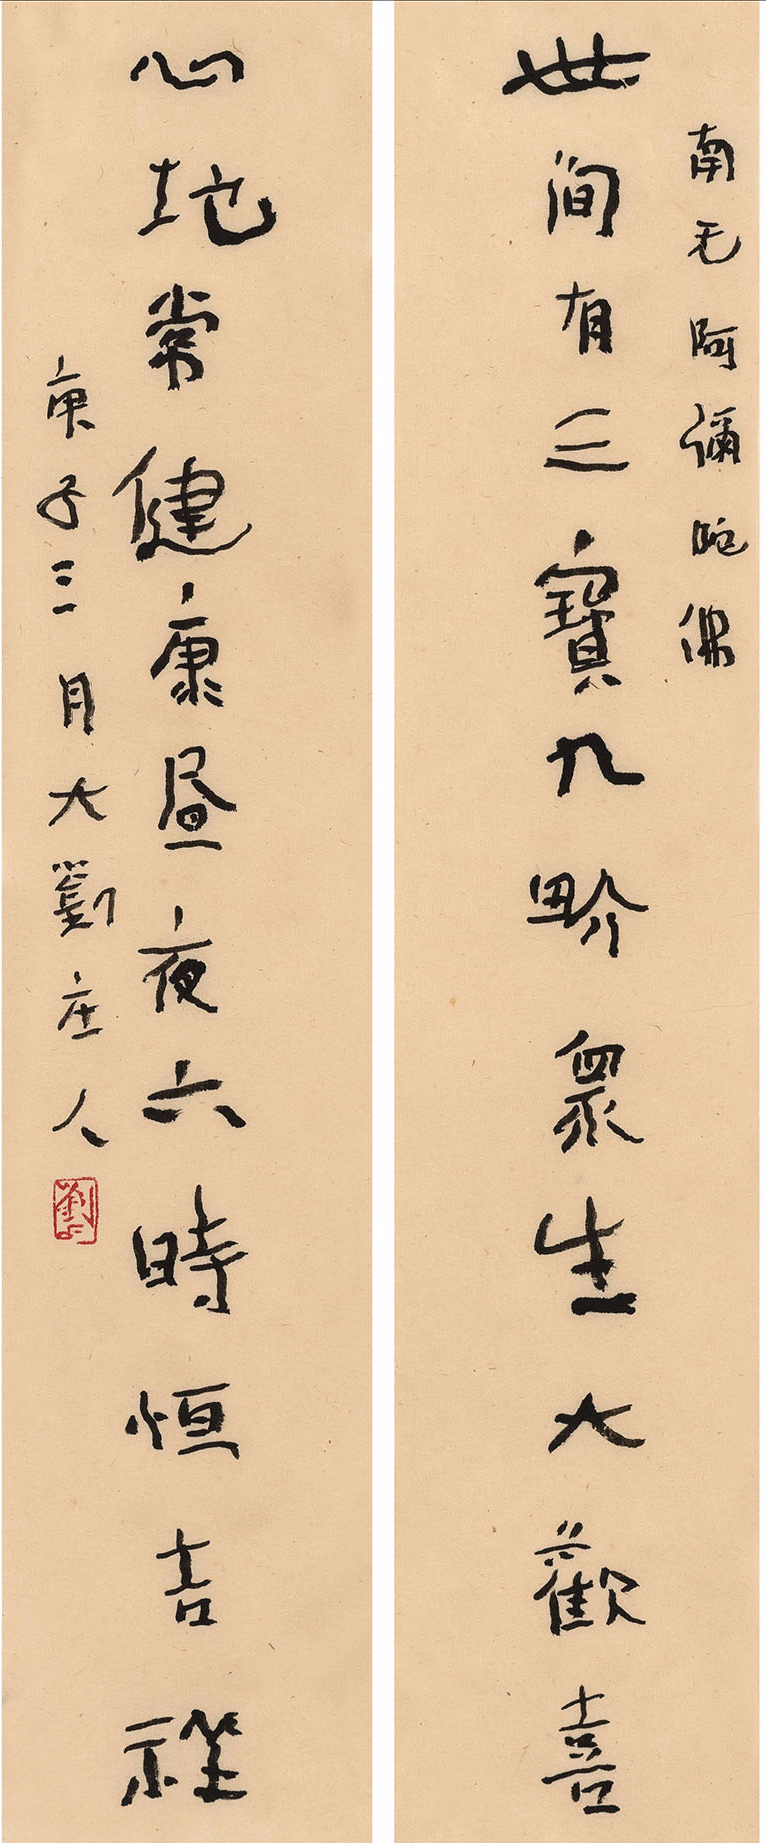 南无阿彌陀佛
世间有三寶九界眾生大歡喜
心地常健康昼夜六時恒吉祥
庚子三月大劉庄人